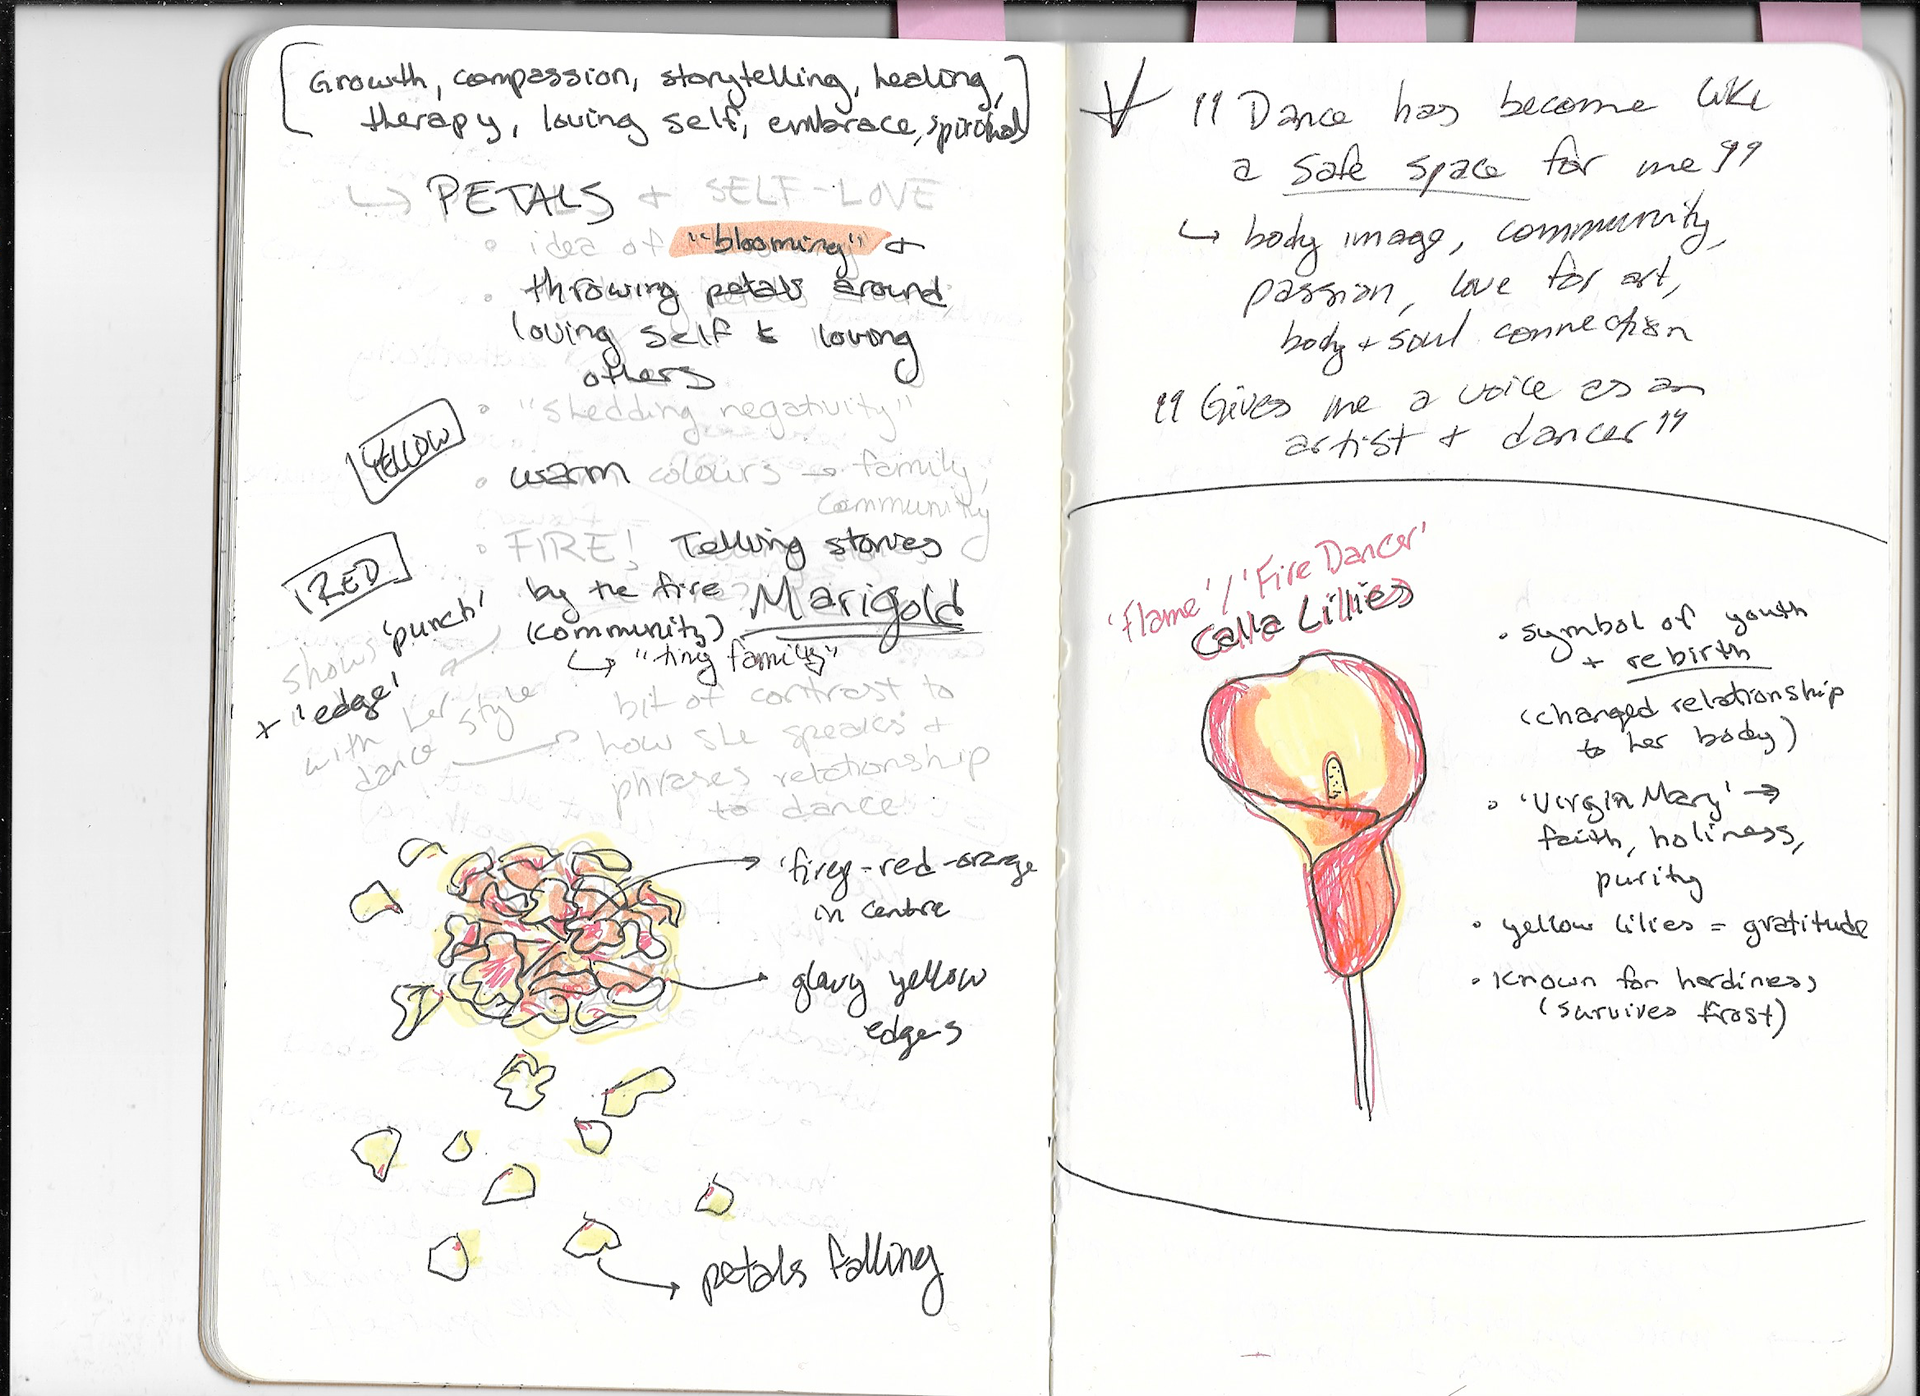 Growth, compassion, storytelling, healing,
therapy, loving self, embrace, spiritual
↳ PETALS + SELF-LOVE
• idea of "blooming" +
• throwing petals around,
loving self & loving
others
• "shedding negativity"
YELLOW
• warm colours → family,
community
• FIRE! Telling stories
by the fire
(community)
↳ "tiny family"
Marigold
RED
shows 'punch'
+ 'edge'
with her
dance style
bit of contrast to
how she speaks +
phrases relationship
to dance
'firey-red-orange
in centre
glowy yellow
edges
petals falling
"Dance has become like
a safe space for me"
↳ body image, community,
passion, love for art,
body + soul connection
"Gives me a voice as an
artist + dancer"
'Flame'/'Fire Dancer'
Calla Lillies
• symbol of youth
+ rebirth
(changed relationship
to her body)
• 'Virgin Mary' →
faith, holiness,
purity
• yellow lilies = gratitude
• Known for hardiness
(survives frost)